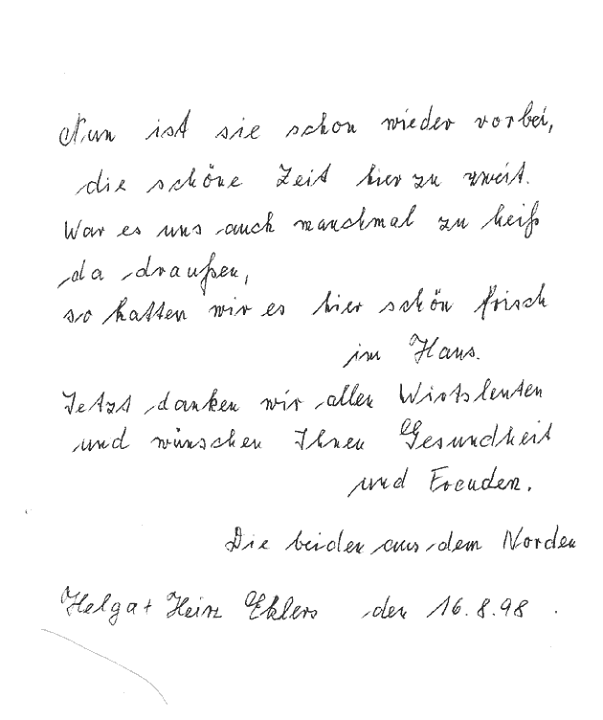 Nun ist sie schon wieder vorbei,
die schöne Zeit hier zu zweit.
War es uns auch manchmal zu heiß
da draußen,
so hatten wir es hier schön frisch
im Haus.
Jetzt danken wir allen Wirtsleuten
und wünschen Ihnen Gesundheit
und Freuden.
Die beiden aus dem Norden
Helga + Heinz Ehlers den 16.8.98.